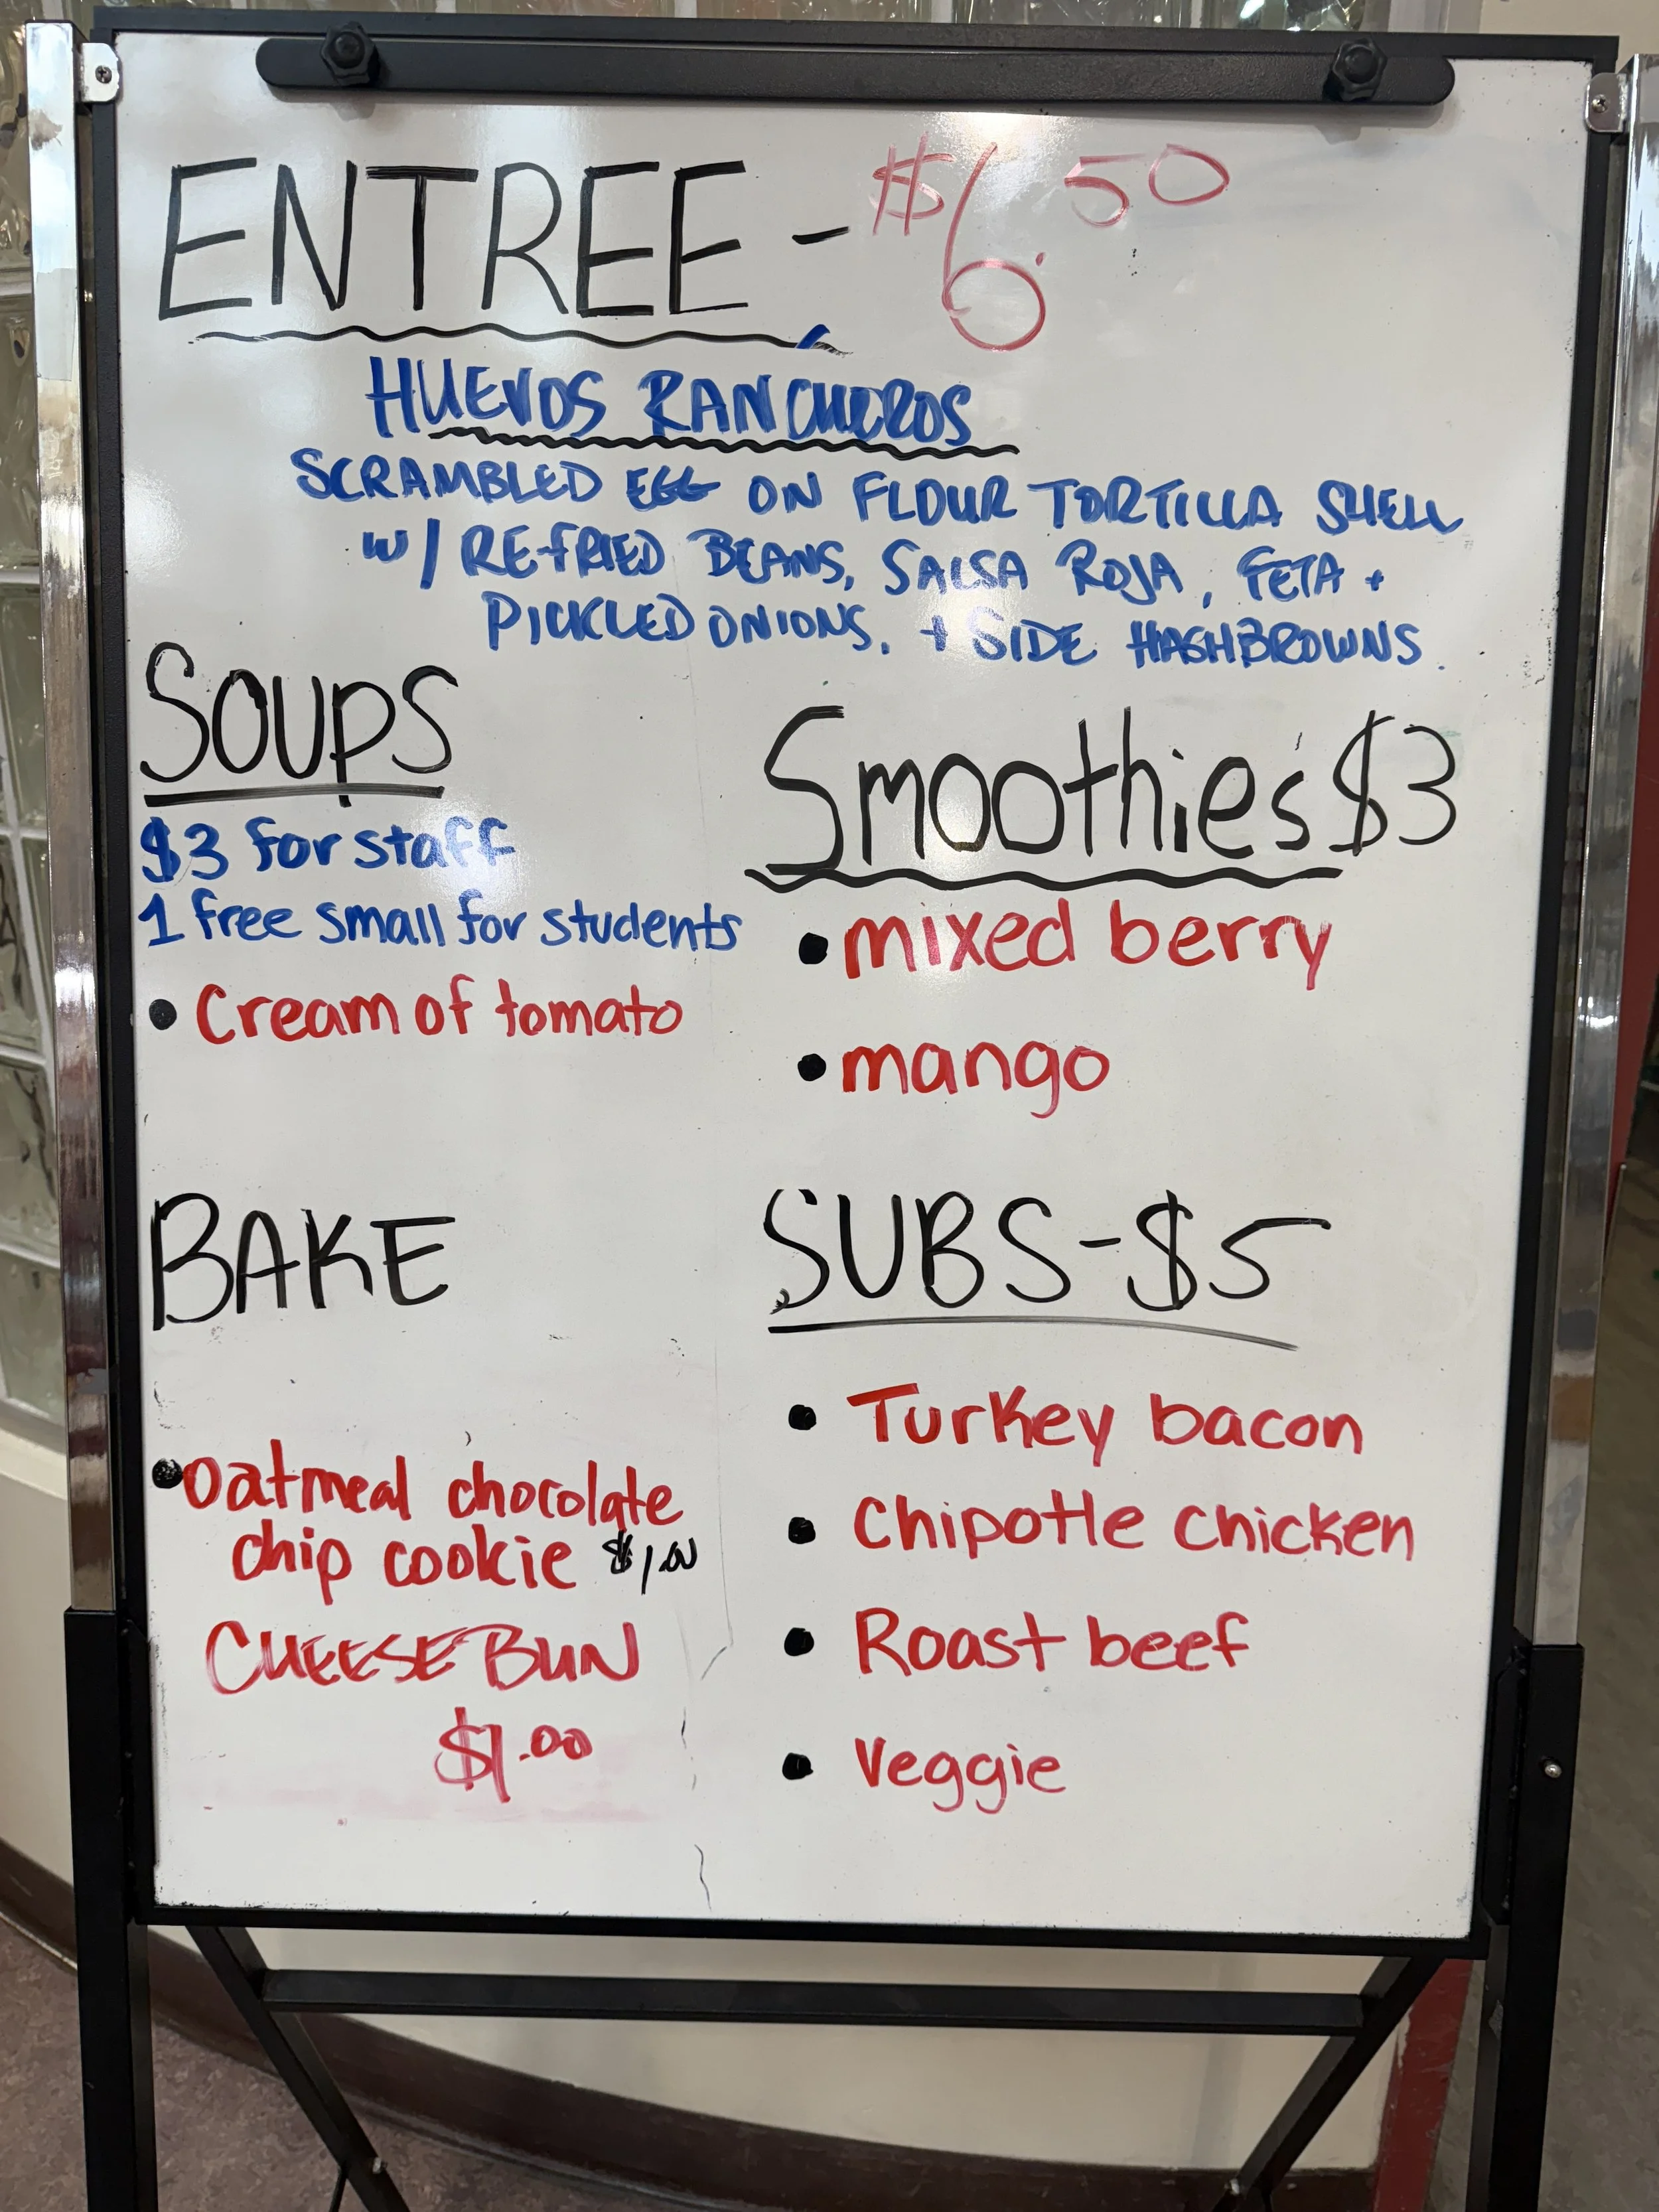 ENTREE - $6.50
HUEVOS RANCHEROS
SCRAMBLED EGG ON FLOUR TORTILLA SHELL
W/ REFRIED BEANS, SALSA ROJA, FETA +
PICKLED ONIONS. + SIDE HASHBROWNS.
SOUPS
$3 for staff
1 free small for students
• Cream of tomato
Smoothie's $3
• mixed berry
• mango
BAKE
• oatmeal chocolate
chip cookie $1.00
CHEESE BUN
$1.00
SUBS - $5
• Turkey bacon
• Chipotle chicken
• Roast beef
• Veggie